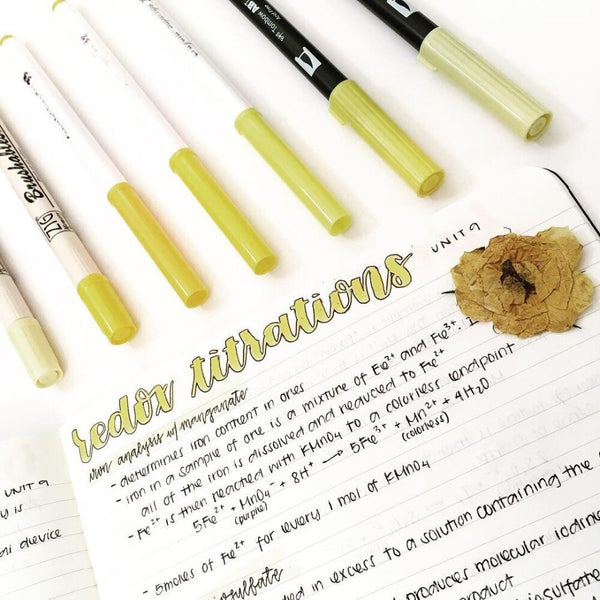 ABT
Tombow
ZIG
Brushables
UNIT 9
redox titrations
iron analysis w/ manganate
- determines iron content in ores
- iron in a sample of ore is a mixture of Fe²⁺ and Fe³⁺.
all of the iron is dissolved and reduced to Fe²⁺
- Fe²⁺ is then reacted with KMnO₄ to a colorless endpoint
5Fe²⁺ + MnO₄⁻ + 8H⁺ → 5Fe³⁺ + Mn²⁺ + 4H₂O
(purple) (colorless)
- 5 moles of Fe²⁺ for every 1 mol of KMnO₄
in excess to a solution containing the
produces molecular iodine
product
UNIT 9
is
device